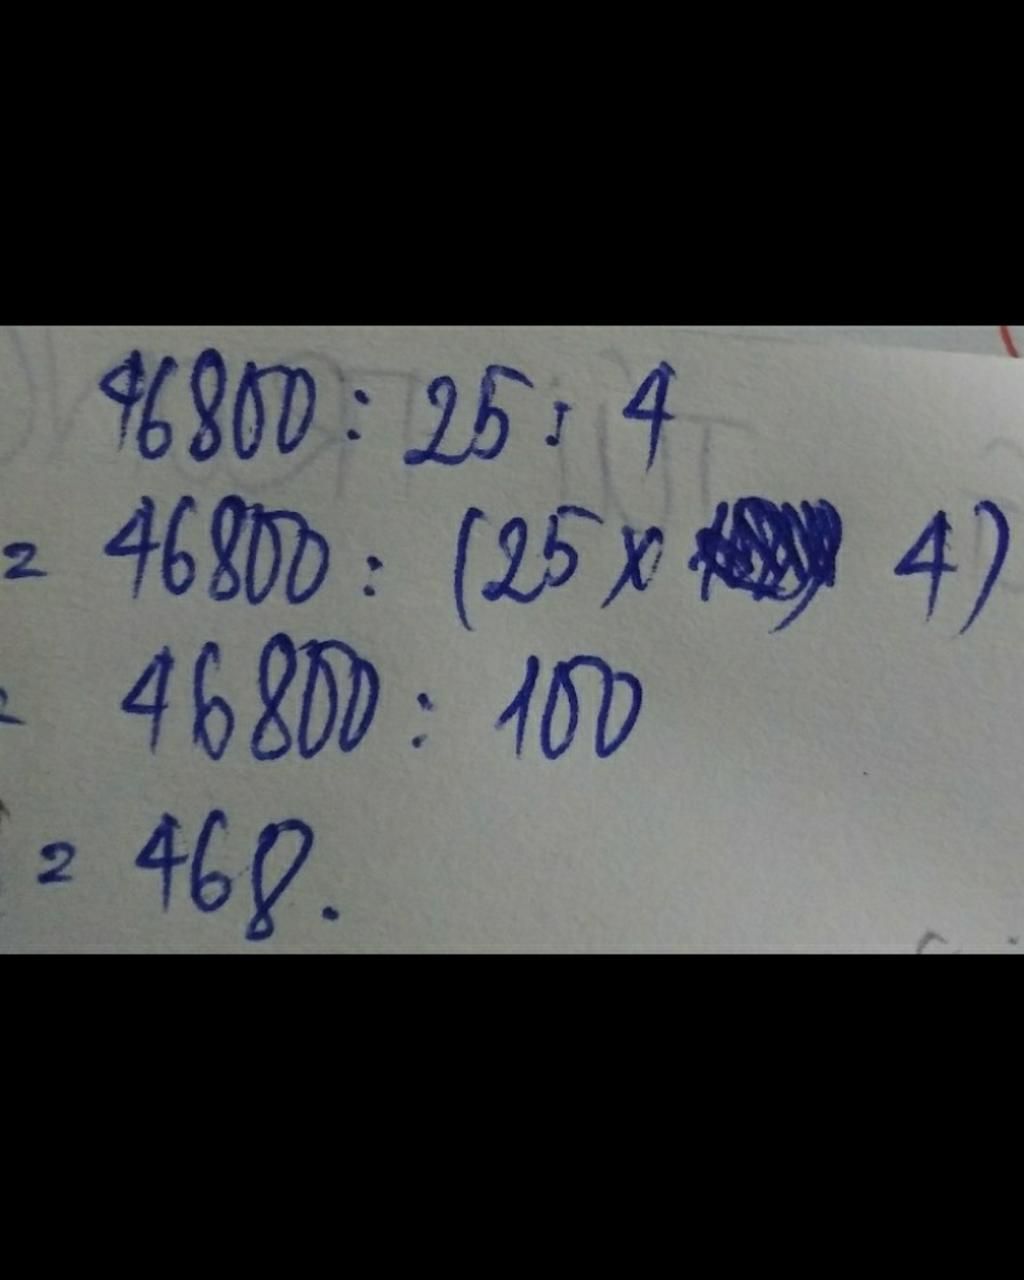 46800 : 25 : 4
= 46800 : (25 x 4)
= 46800 : 100
= 468.